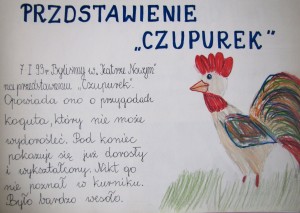 PRZDSTAWIENIE
„CZUPUREK"
7 I 93r Byliśmy w „Teatrze Nowym"
na przedstawieniu „Czupurek".
Opowiada ono o przygodach
koguta, który nie może
wydorośleć. Pod koniec
pokazuje się już dorosły
i wykształcony. Nikt go
nie poznał w kurniku.
Było bardzo wesoło.